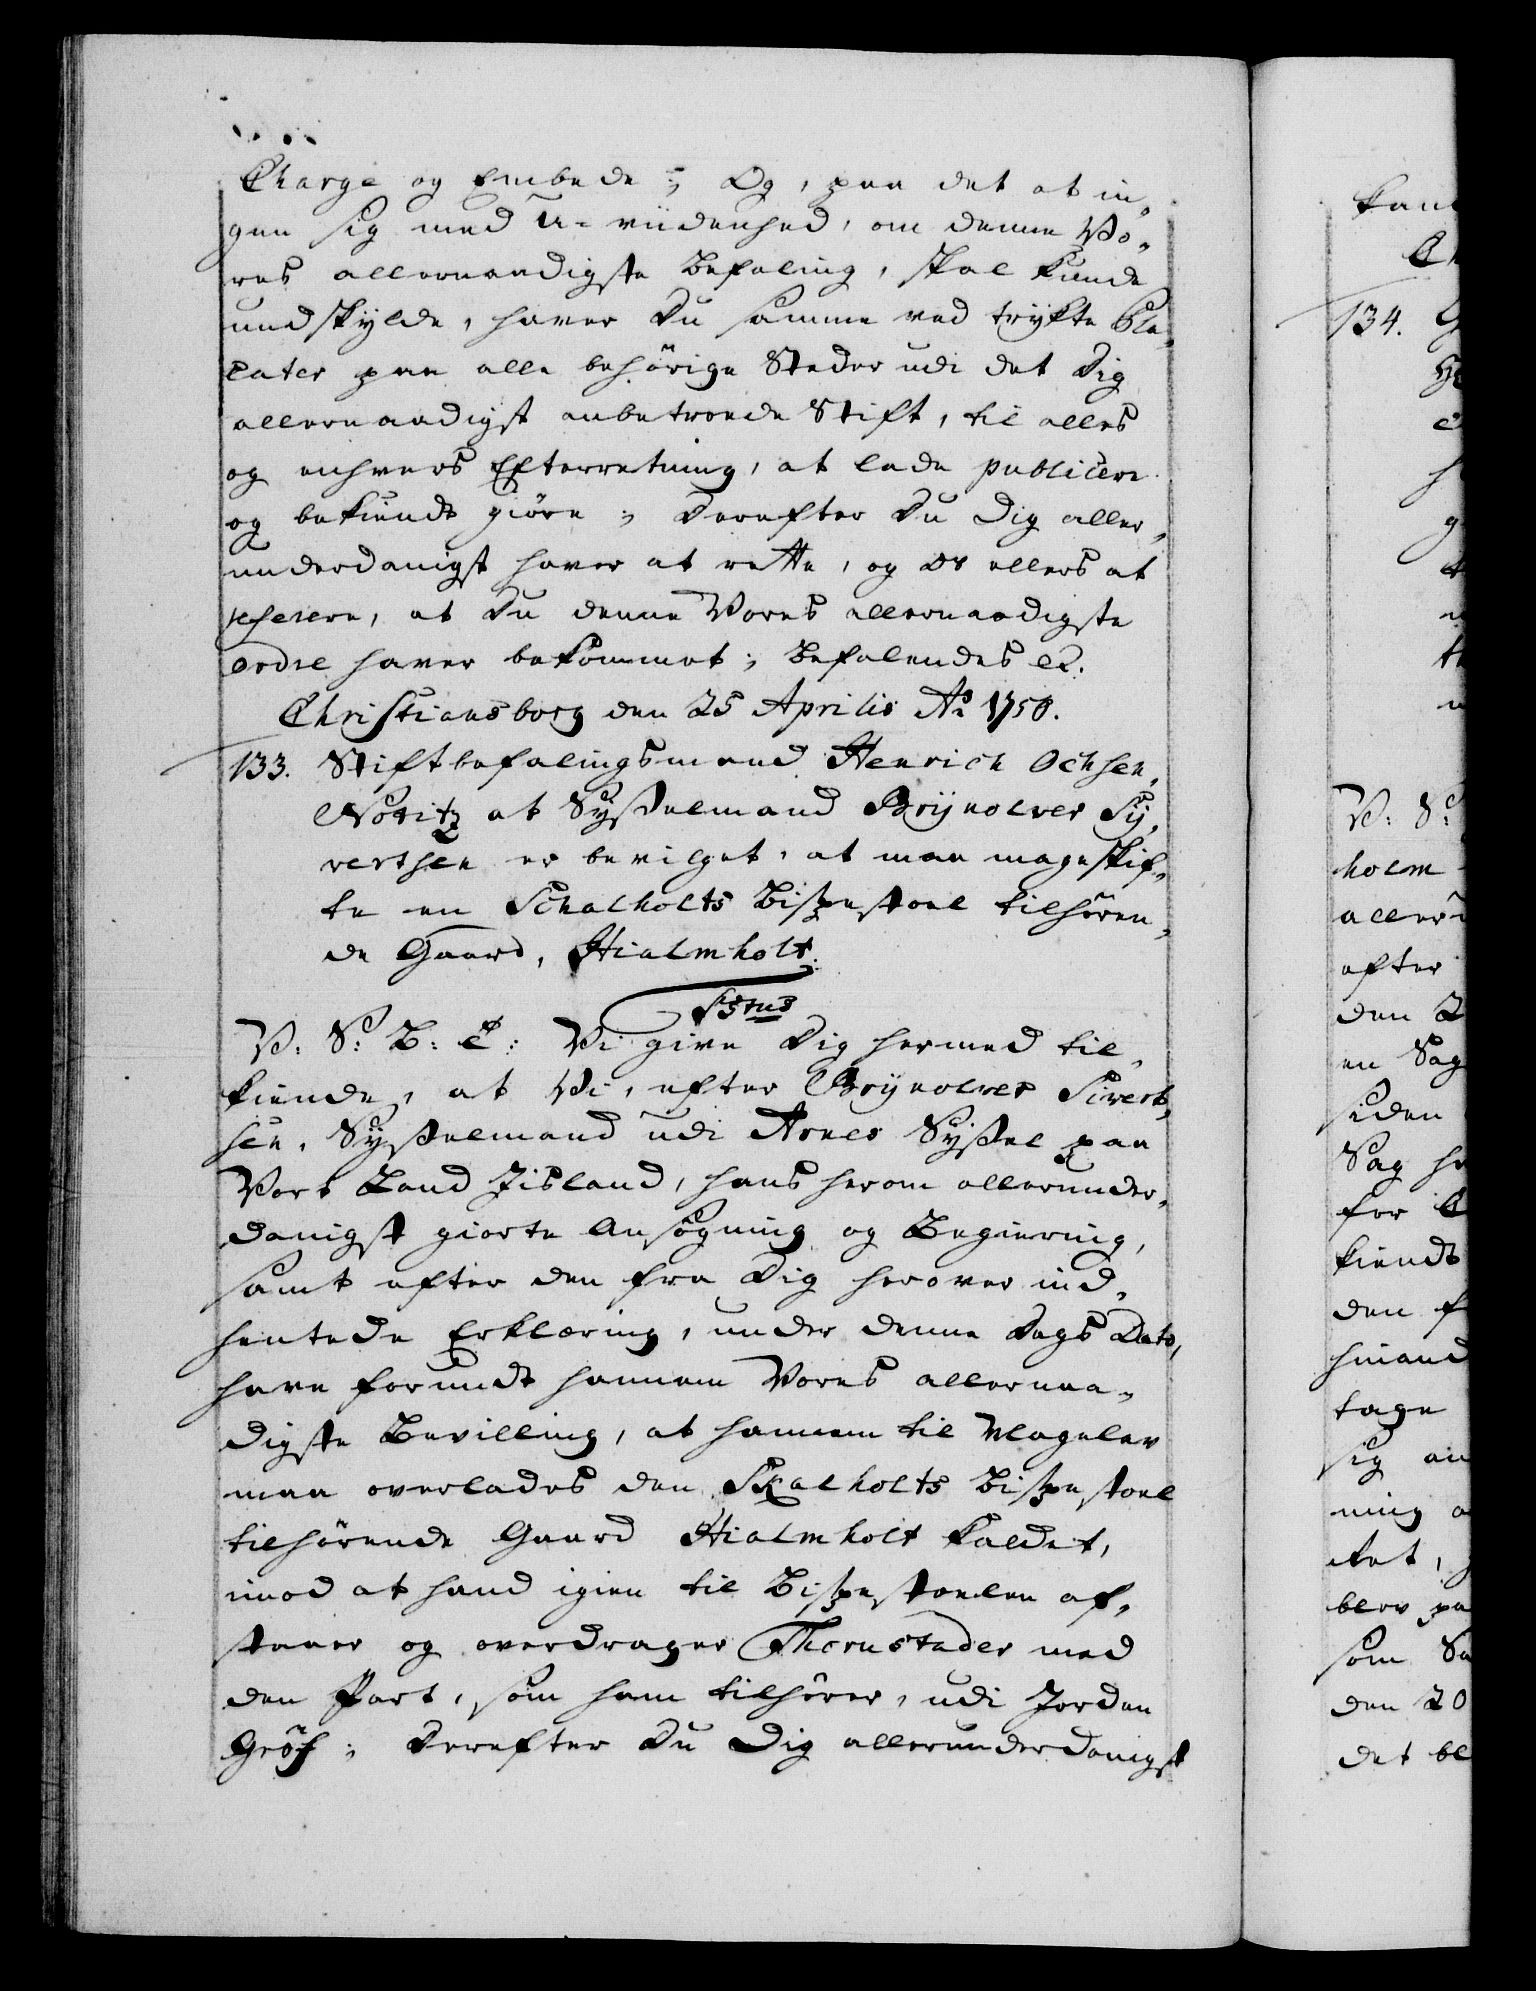 Charge og Embede; Og, paa det at in-
gen sig med u-viidenhed, om denne Vo-
res allernaadigste Befaling, skal kunde
undskylde, haver Du samme ved trykte Pla-
cater paa alle behörige Steder udi det Dig
allernaadigst anbetroede Stift, til alles
og enhvers Efterretning, at lade publicere
og bekiendt giöre; Derefter Du Dig aller-
underdanigst haver at rette, og Os ellers at
referere, at Du denne Vores allernaadigste
ordre haver bekommet; Befalendes etc.
Christiansborg den 25 Aprilis Ao 1750.
133. Stiftbefalingsmand Henrich Ochsen,
Notitz at Sysselmand Brynolver Sy-
vertsen er bevilget, at maa mageskif-
te en Schalholts Bispestoel tilhören-
de Gaard, Hialmholt.
V: S: B: C: Vi give Dig hermed til-
kiende, at Vi, efter Brynolver Sivert-
sen, Sysselmand udi Arnes Syssel paa
Vort Land Jisland, hans herom allerunder-
danigst giorte Ansögning og Begiering,
samt efter den fra Dig herover ind-
hentede Erklæring, under denne Dags Dato,
have forundt hannem Vores allernaa-
digste Bevilling, at hannem til Magelav
maa overlades den Skalholts Bispestoel
tilhörende Gaard Hialmholt kaldet,
imod at hand igien til Bispestoelen af-
staaer og overdrager Thorustader med
den Part, som ham tilhörer, udi Jorden
Gröf; Derefter Du Dig allerunderdanigst
134.
V: S:
holm
aller
efter
den 2
en Sag
siden
Sag
for
kiendt
den
tage
sig
ning
blev
som
den 20
det bl